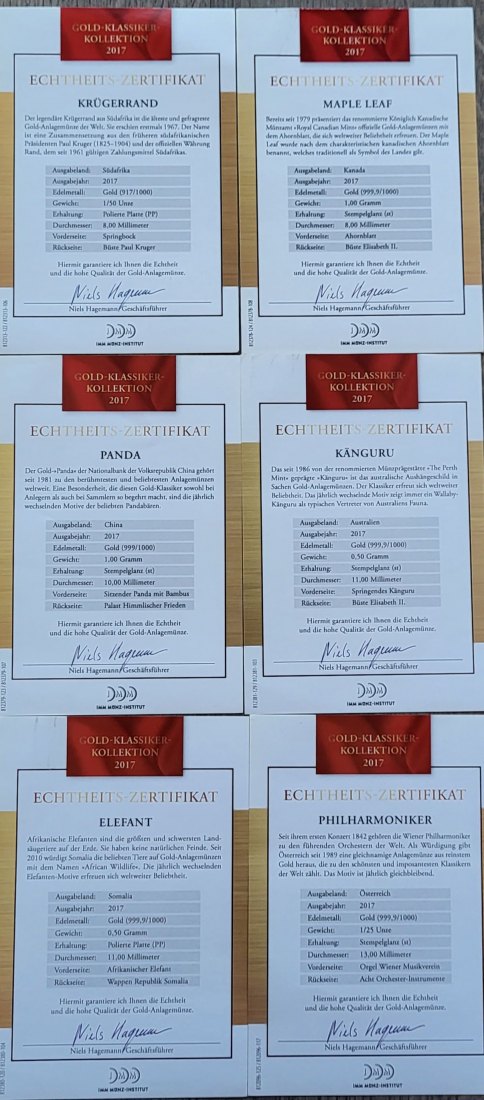 GOLD-KLASSIKER-
KOLLEKTION
2017
ECHTHEITS-ZERTIFIKAT
KRÜGERRAND
Der legendäre Krügerrand aus Südafrika ist die älteste und gefragteste
Gold-Anlagemünze der Welt. Sie erschien erstmals 1967. Der Name
ist eine Zusammensetzung aus den früheren südafrikanischen
Präsidenten Paul Kruger (1825–1904) und der offiziellen Währung
Rand, dem seit 1961 gültigen Zahlungsmittel Südafrikas.
Ausgabeland: Südafrika
Ausgabejahr: 2017
Edelmetall: Gold (917/1000)
Gewicht: 1/50 Unze
Erhaltung: Polierte Platte (PP)
Durchmesser: 8,00 Millimeter
Vorderseite: Springbock
Rückseite: Büste Paul Kruger
Hiermit garantiere ich Ihnen die Echtheit
und die hohe Qualität der Gold-Anlagemünze.
Niels Hagemann
Niels Hagemann/Geschäftsführer
IMM MÜNZ-INSTITUT
GOLD-KLASSIKER-
KOLLEKTION
2017
ECHTHEITS-ZERTIFIKAT
MAPLE LEAF
Bereits seit 1979 präsentiert das renommierte Königlich Kanadische
Münzamt »Royal Canadian Mint« offizielle Gold-Anlagemünzen mit
dem Ahornblatt, die sich weltweiter Beliebtheit erfreuen. Der Maple
Leaf wurde nach dem charakteristischen kanadischen Ahornblatt
benannt, welches traditionell als Symbol des Landes gilt.
Ausgabeland: Kanada
Ausgabejahr: 2017
Edelmetall: Gold (999,9/1000)
Gewicht: 1,00 Gramm
Erhaltung: Stempelglanz (st)
Durchmesser: 8,00 Millimeter
Vorderseite: Ahornblatt
Rückseite: Büste Elisabeth II.
Hiermit garantiere ich Ihnen die Echtheit
und die hohe Qualität der Gold-Anlagemünze.
Niels Hagemann
Niels Hagemann/Geschäftsführer
IMM MÜNZ-INSTITUT
GOLD-KLASSIKER-
KOLLEKTION
2017
ECHTHEITS-ZERTIFIKAT
PANDA
Der Gold-»Panda« der Nationalbank der Volksrepublik China gehört
seit 1981 zu den berühmtesten und beliebtesten Anlagemünzen
weltweit. Eine Besonderheit, die diesen Gold-Klassiker sowohl bei
Anlegern als auch bei Sammlern so begehrt macht, sind die jährlich
wechselnden Motive der beliebten Pandabären.
Ausgabeland: China
Ausgabejahr: 2017
Edelmetall: Gold (999/1000)
Gewicht: 1,00 Gramm
Erhaltung: Stempelglanz (st)
Durchmesser: 10,00 Millimeter
Vorderseite: Sitzender Panda mit Bambus
Rückseite: Palast Himmlischer Frieden
Hiermit garantiere ich Ihnen die Echtheit
und die hohe Qualität der Gold-Anlagemünze.
Niels Hagemann
Niels Hagemann/Geschäftsführer
IMM MÜNZ-INSTITUT
GOLD-KLASSIKER-
KOLLEKTION
2017
ECHTHEITS-ZERTIFIKAT
KÄNGURU
Das seit 1986 von der renommierten Münzprägestätte »The Perth
Mint« geprägte »Känguru« ist das australische Aushängeschild in
Sachen Gold-Anlagemünzen. Der Klassiker erfreut sich weltweiter
Beliebtheit. Das jährlich wechselnde Motiv zeigt immer ein Wallaby-
Känguru als typischen Vertreter von Australiens Fauna.
Ausgabeland: Australien
Ausgabejahr: 2017
Edelmetall: Gold (999,9/1000)
Gewicht: 0,50 Gramm
Erhaltung: Stempelglanz (st)
Durchmesser: 11,00 Millimeter
Vorderseite: Springendes Känguru
Rückseite: Büste Elisabeth II.
Hiermit garantiere ich Ihnen die Echtheit
und die hohe Qualität der Gold-Anlagemünze.
Niels Hagemann
Niels Hagemann/Geschäftsführer
IMM MÜNZ-INSTITUT
GOLD-KLASSIKER-
KOLLEKTION
2017
ECHTHEITS-ZERTIFIKAT
ELEFANT
Afrikanische Elefanten sind die größten und schwersten Land-
säugetiere auf der Erde. Sie haben keine natürlichen Feinde. Seit
2010 würdigt Somalia die beliebten Tiere auf Gold-Anlagemünzen
mit dem Namen »African Wildlife«. Die jährlich wechselnden
Elefanten-Motive erfreuen sich weltweiter Beliebtheit.
Ausgabeland: Somalia
Ausgabejahr: 2017
Edelmetall: Gold (999,9/1000)
Gewicht: 0,50 Gramm
Erhaltung: Polierte Platte (PP)
Durchmesser: 11,00 Millimeter
Vorderseite: Afrikanischer Elefant
Rückseite: Wappen Republik Somalia
Hiermit garantiere ich Ihnen die Echtheit
und die hohe Qualität der Gold-Anlagemünze.
Niels Hagemann
Niels Hagemann/Geschäftsführer
IMM MÜNZ-INSTITUT
GOLD-KLASSIKER-
KOLLEKTION
2017
ECHTHEITS-ZERTIFIKAT
PHILHARMONIKER
Seit ihrem ersten Konzert 1842 gehören die Wiener Philharmoniker
zu den führenden Orchestern der Welt. Als Würdigung gibt
Österreich seit 1989 eine gleichnamige Anlagemünze aus reinstem
Gold heraus, die zu den schönsten und imposantesten Klassikern
der Welt zählt. Das Motiv ist jährlich gleichbleibend.
Ausgabeland: Österreich
Ausgabejahr: 2017
Edelmetall: Gold (999,9/1000)
Gewicht: 1/25 Unze
Erhaltung: Stempelglanz (st)
Durchmesser: 13,00 Millimeter
Vorderseite: Orgel Wiener Musikverein
Rückseite: Acht Orchester-Instrumente
Hiermit garantiere ich Ihnen die Echtheit
und die hohe Qualität der Gold-Anlagemünze.
Niels Hagemann
Niels Hagemann/Geschäftsführer
IMM MÜNZ-INSTITUT